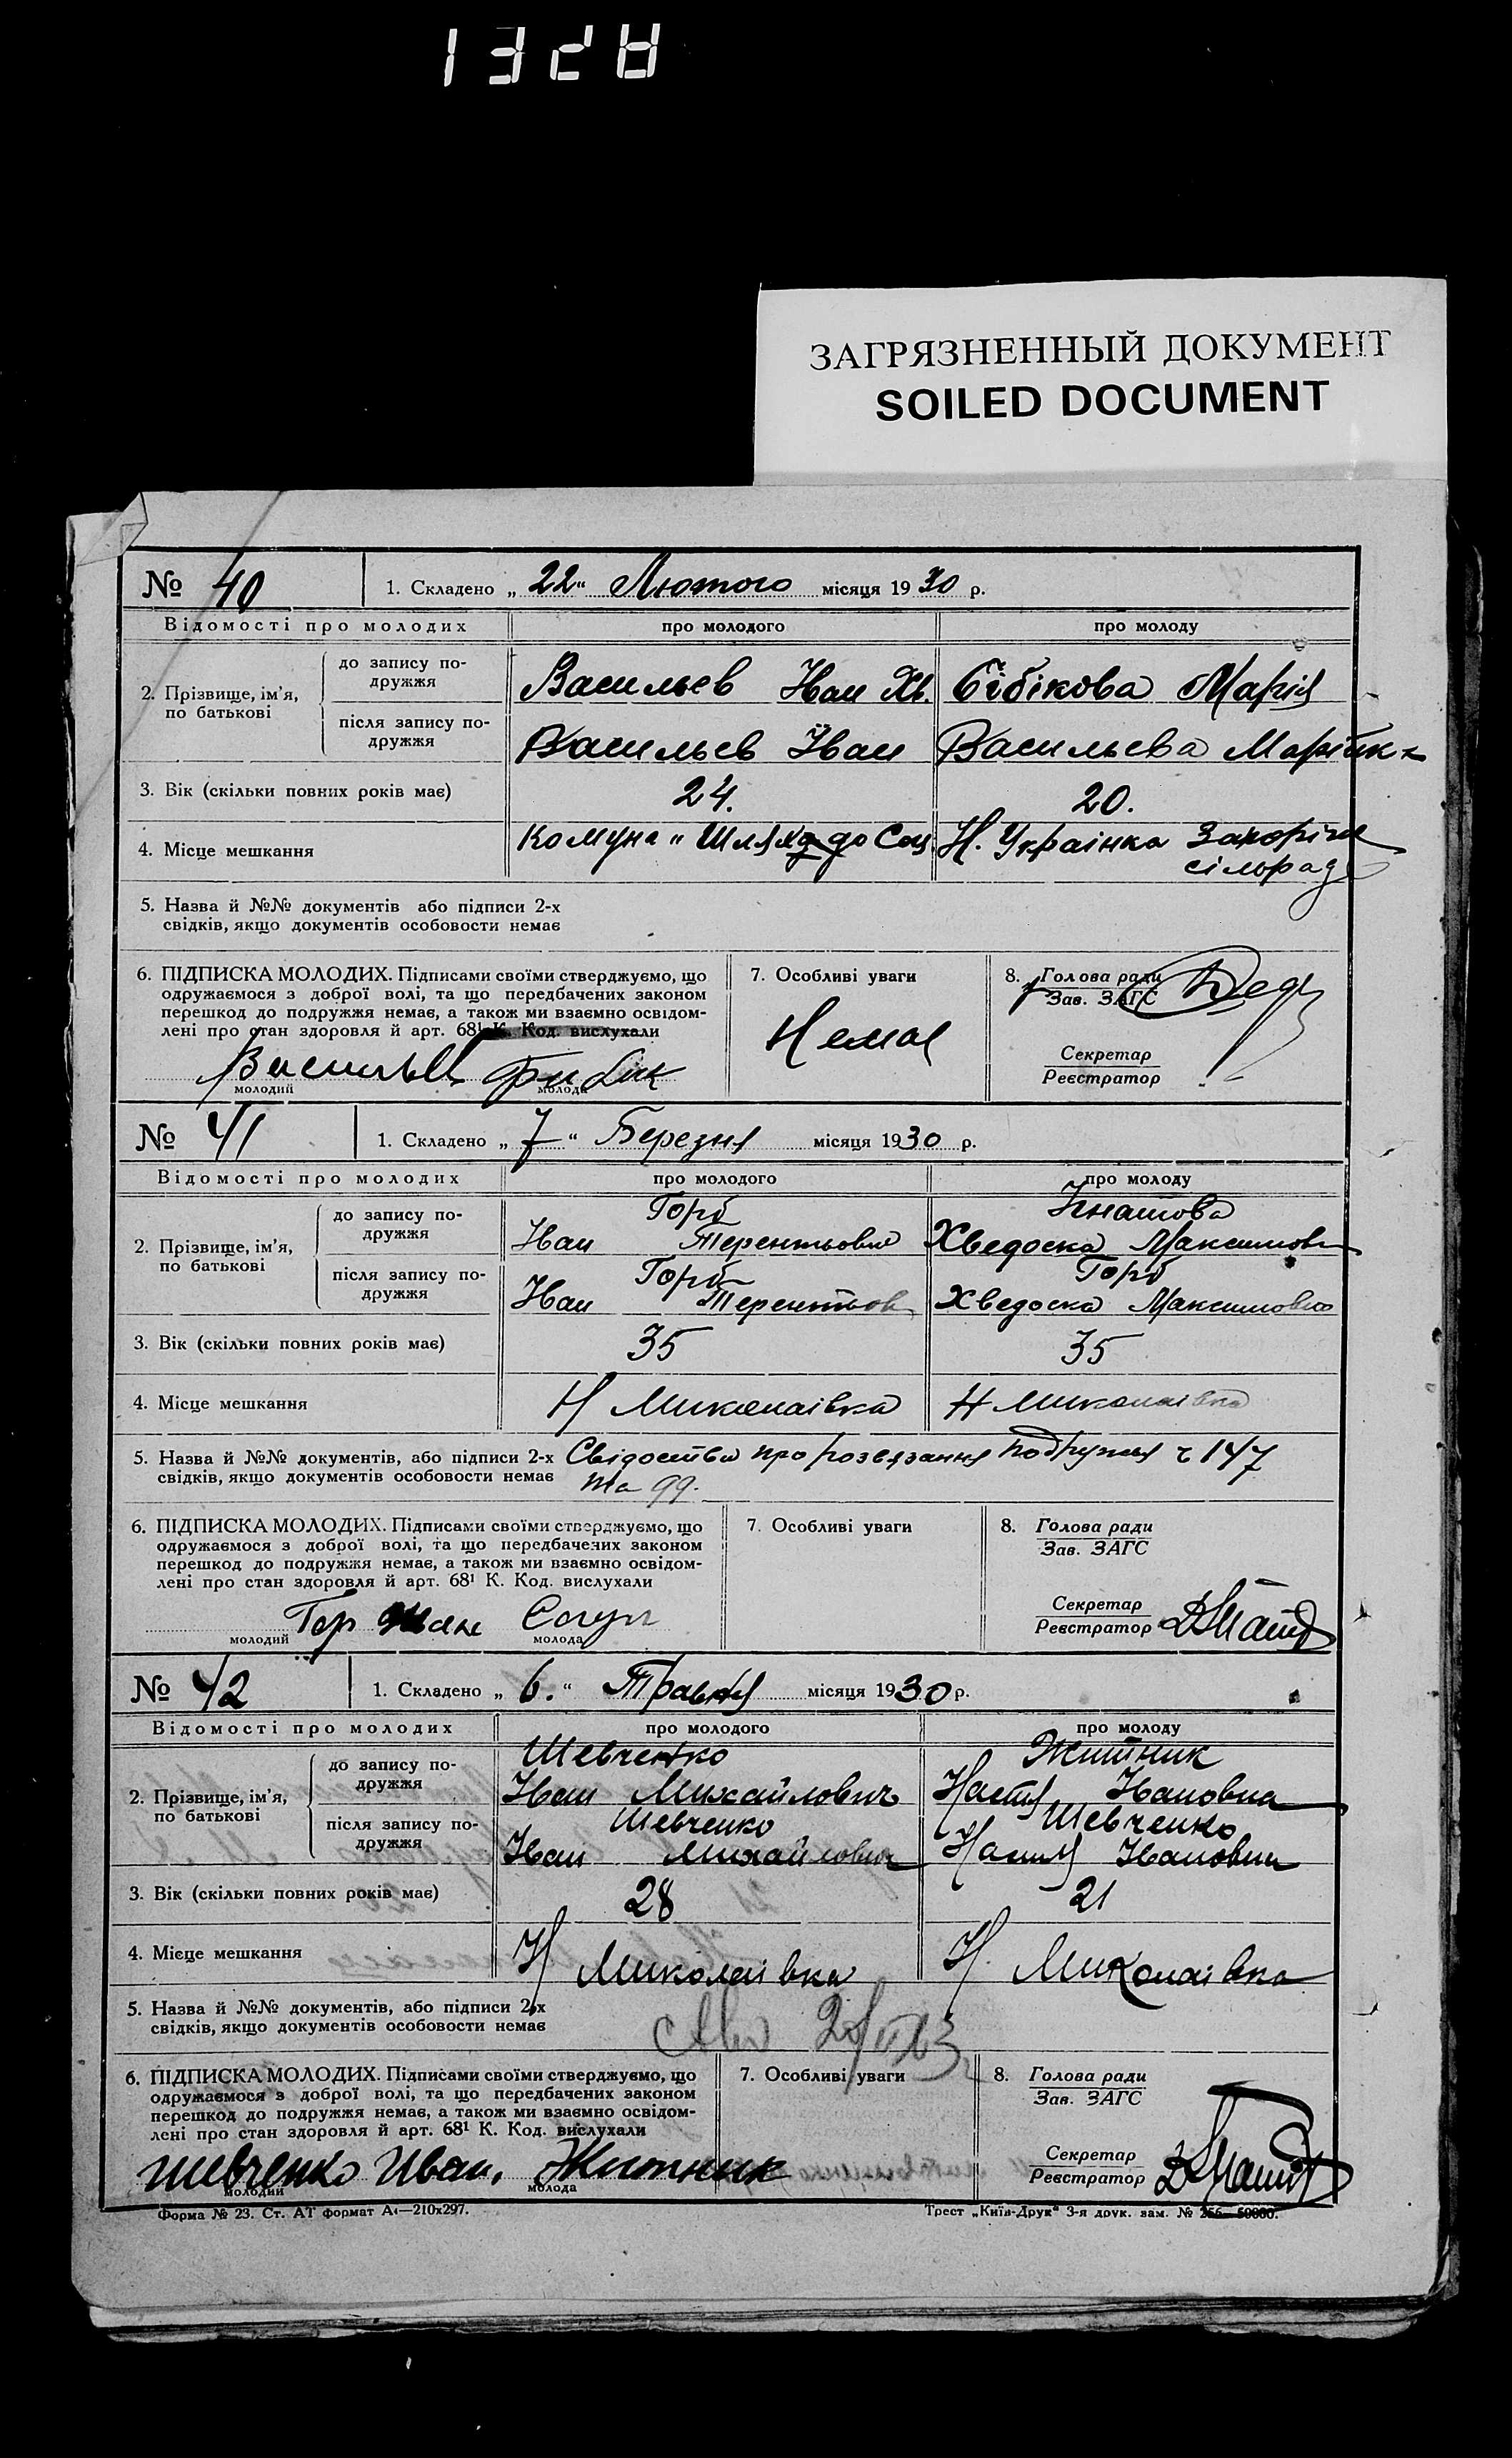 1328
ЗАГРЯЗНЕННЫЙ ДОКУМЕНТ
SOILED DOCUMENT
№ 40 1. Складено „ 22 “ Лютого місяця 1930 р.
Відомості про молодих про молодого про молоду
2. Прізвище, ім’я, по батькові
до запису подружжя Васильев Иван Хв. Бібікова Марія
після запису подружжя Васильев Іван Васильева Марія
3. Вік (скільки повних років має) 24. 20.
4. Місце мешкання Комуна „ Шлях до Соц. Н. Украінка
сільрад
5. Назва й №№ документів або підписи 2-х
свідків, якщо документів особовости немає
6. ПІДПИСКА МОЛОДИХ. Підписами своїми стверджуємо, що
одружаємося з доброї волі, та що передбачених законом
перешкод до подружжя немає, а також ми взаємно освідом-
лені про стан здоровля й арт. 68¹ К. Код. вислухали
молодий молода
7. Особливі уваги
Немає
8. Голова ради
Зав. ЗАГС
Секретар
Реєстратор
№ 41 1. Складено „ 7 “ Березня місяця 1930 р.
Відомості про молодих про молодого про молоду
2. Прізвище, ім’я, по батькові
до запису подружжя Горб Игнатова
Иван Терентьович Хведоска Максимовн
після запису подружжя Горб Горб
Иван Терентьов Хведоска Максимовна
3. Вік (скільки повних років має) 35 35
4. Місце мешкання Н Миколаівка Н Миколаівка
5. Назва й №№ документів, або підписи 2-х Свідоства про розвязання подружжя ч 147
свідків, якщо документів особовости немає та 99.
6. ПІДПИСКА МОЛОДИХ. Підписами своїми стверджуємо, що
одружаємося з доброї волі, та що передбачених законом
перешкод до подружжя немає, а також ми взаємно освідом-
лені про стан здоровля й арт. 68¹ К. Код. вислухали
Гор Иван
молодий молода
7. Особливі уваги
8. Голова ради
Зав. ЗАГС
Секретар
Реєстратор
№ 42 1. Складено „ 6. “ Травня місяця 1930 р.
Відомості про молодих про молодого про молоду
2. Прізвище, ім’я, по батькові
до запису подружжя Шевченко Житник
Иван Михайлович Настя Ивановна
після запису подружжя Шевченко Шевченко
Иван Михайлович Настя Ивановна
3. Вік (скільки повних років має) 28 21
4. Місце мешкання Н Миколаівка Н. Миколаівка
5. Назва й №№ документів, або підписи 2-х
свідків, якщо документів особовости немає
6. ПІДПИСКА МОЛОДИХ. Підписами своїми стверджуємо, що
одружаємося з доброї волі, та що передбачених законом
перешкод до подружжя немає, а також ми взаємно освідом-
лені про стан здоровля й арт. 68¹ К. Код. вислухали
Шевченко Иван. Житник
молодий молода
7. Особливі уваги
8. Голова ради
Зав. ЗАГС
Секретар
Реєстратор
Форма № 23. Ст. АТ формат А4—210х297.
Трест „Київ-Друк“ 3-я друк. зам. № 256—50000.